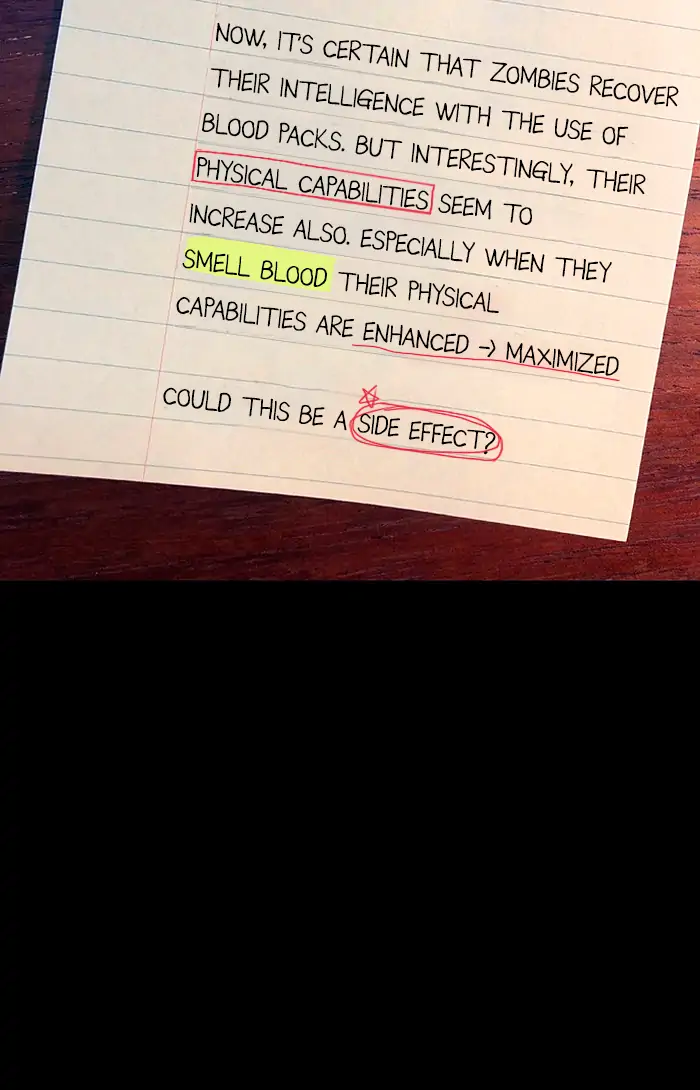 NOW, IT'S CERTAIN THAT ZOMBIES RECOVER
THEIR INTELLIGENCE WITH THE USE OF
BLOOD PACKS. BUT INTERESTINGLY, THEIR
PHYSICAL CAPABILITIES SEEM TO
INCREASE ALSO. ESPECIALLY WHEN THEY
SMELL BLOOD THEIR PHYSICAL
CAPABILITIES ARE ENHANCED → MAXIMIZED
COULD THIS BE A SIDE EFFECT?